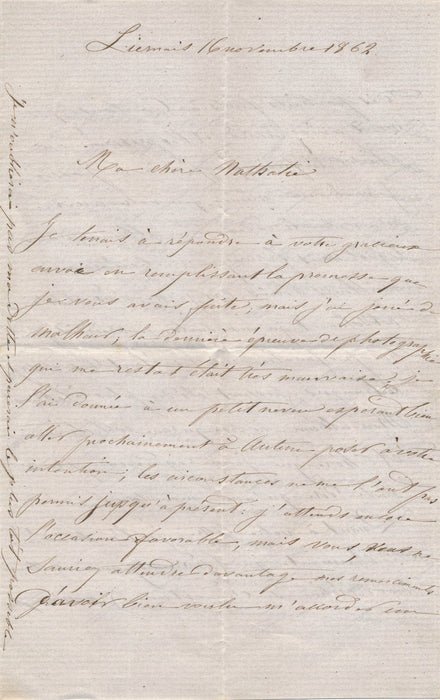 16 novembre 1862
Ma chère Nathalie
Je tenais à répondre à votre gracieux
envoi en remplissant la promesse que
je vous avais faite, mais j'ai joué de
malheur, la dernière épreuve de photographie
qui me restat était très mauvaise, je
l'ai donnée à un petit neveu espérant bien
aller prochainement à Autun poser à votre
intention ; les circonstances ne me l'ont pas
permis jusqu'à présent. j'attends encore
l'occasion favorable, mais vous, vous ne
sauriez attendre davantage mes remerciements
d'avoir bien voulu m'accorder une